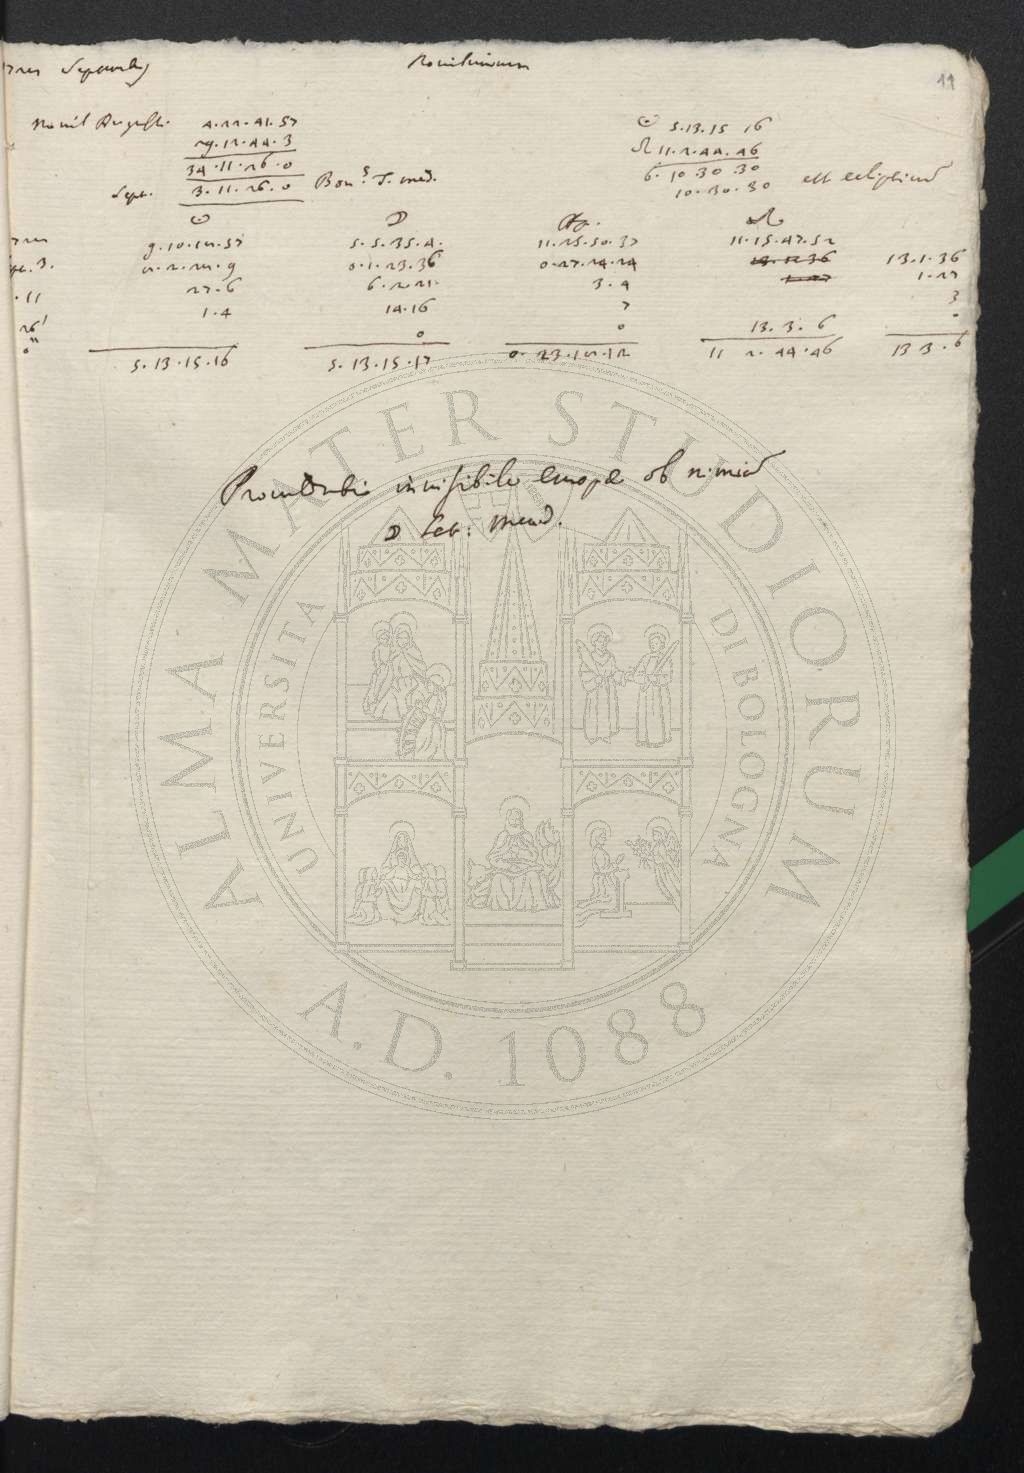 Septembris Novilunium
11
Novil Augusti. 4.22.41.57
29.12.44.3
34.11.26.0
Sept. 3.11.26.0 Bon. T. med.
☉ 5.13.15 16
☊ 11.2.44.46
6.10.30.30
10.30.30 est eclipticum
☉ ☽ ☊
9.10.12.57 5.5.35.4. 11.25.50.37 11.15.47.52
0.2.21.9 0.1.23.36 0.27.14.24 13.12 36 13.1.36
27.6 6.2.21. 3.4 1.27 1.27
11 1.4 14.16 7 3
26 0 0 13.3.6 0
0 5.13.15.16 5.13.15.17 0.23.12.12 11 2.44.46 13 3.6
Procul Dubio invisibile Europae ob nimiam
☽ lat: merid.
ALMA MATER STUDIORUM
UNIVERSITA DI BOLOGNA
A.D. 1088